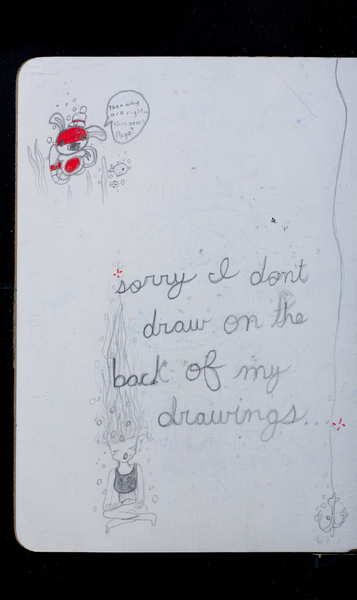 Then why
are
this
sorry I dont
draw on the
back of my
drawings...